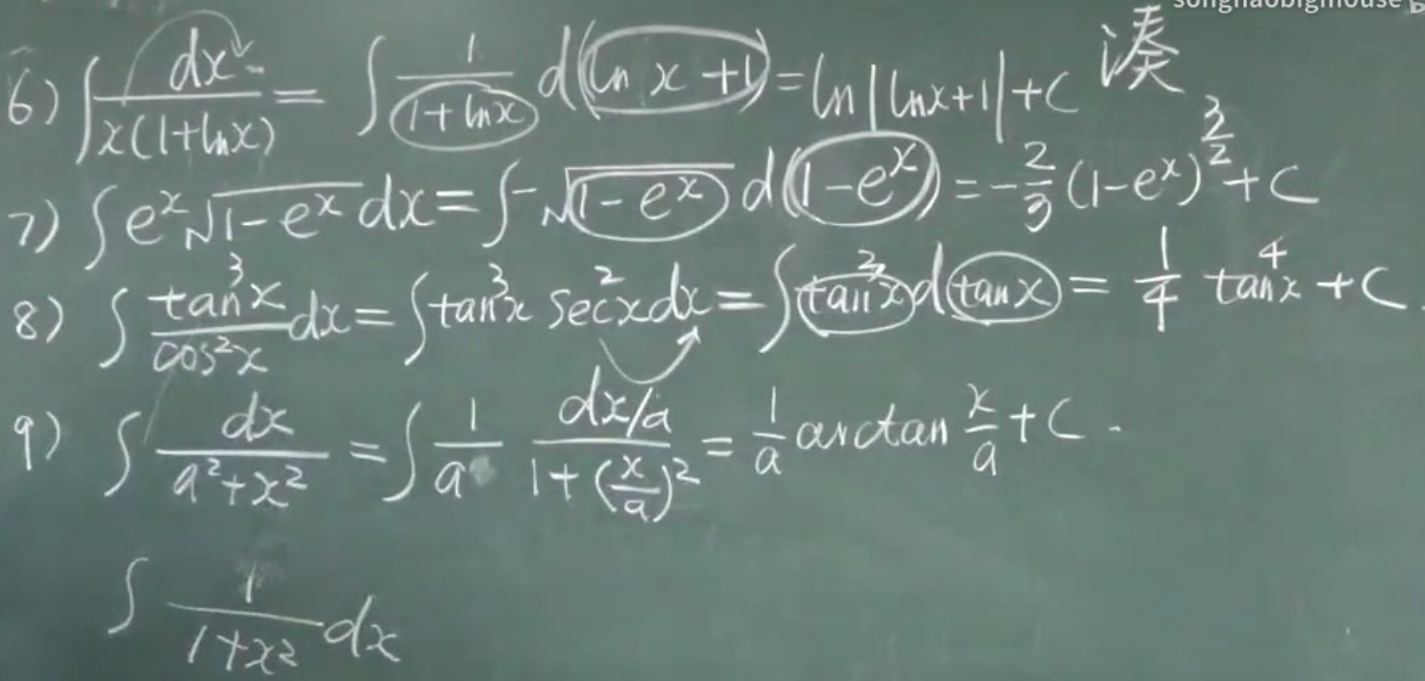 songhaobigmouse b
6) ∫ dx / x(1+lnx) = ∫ 1/(1+lnx) d(ln x +1) = ln|lnx+1|+C 凑
7) ∫ eˣ √(1-eˣ) dx = ∫ -√(1-eˣ) d(1-eˣ) = -2/3 (1-eˣ)^(3/2) + C
8) ∫ tan³x / cos²x dx = ∫ tan³x sec²x dx = ∫ tan³x d tanx = 1/4 tan⁴x + C
9) ∫ dx / (a²+x²) = ∫ 1/a dx/a / (1+(x/a)²) = 1/a arctan x/a + C.
∫ 1/(1+x²) dx